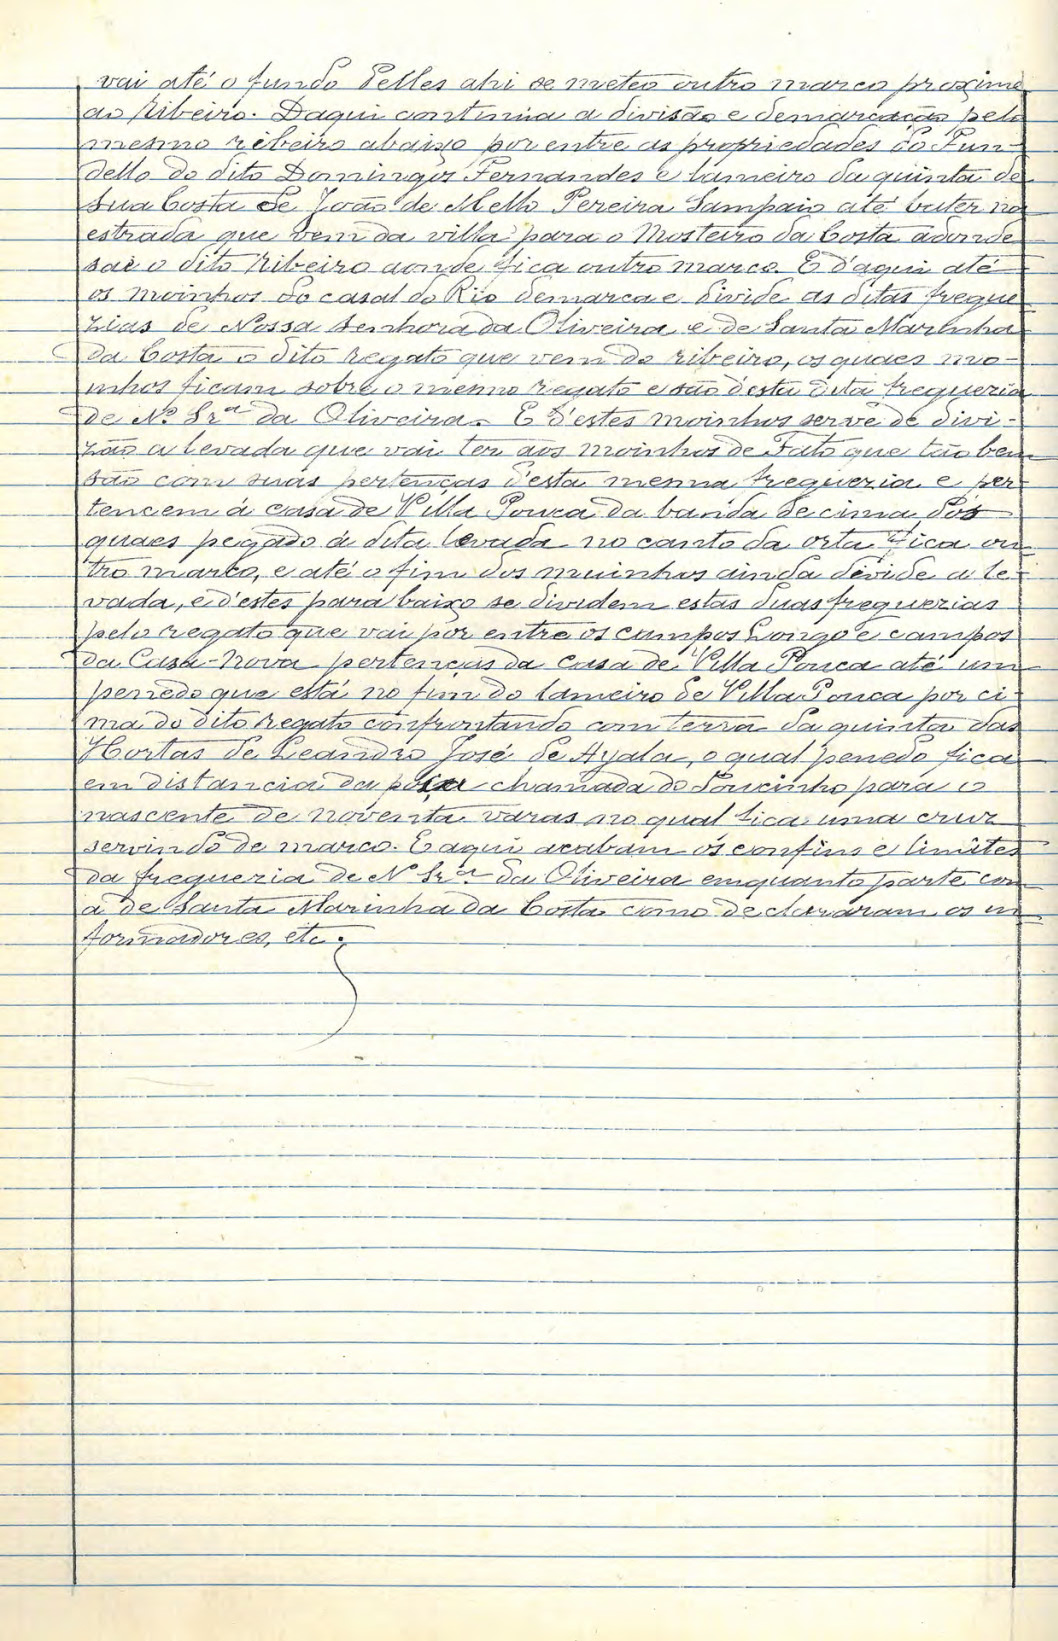 vai até o fundo Pelles ahi se meteo outro marco proximo
ao Ribeiro. Daqui continua a divisão e demarcação pelo
mesmo ribeiro abaixo por entre as propriedades do Fun-
dello do dito Domingos Fernandes e lameiro da quinta de
sua Costa de João de Mello Pereira Sampaio até bater na
estrada que vem da villa para o Mosteiro da Costa adonde
sai o dito Ribeiro aonde fica outro marco. E d'aqui até
os moinhos do casal do Rio demarca e divide as ditas fregue
zias de Nossa Senhora da Oliveira e de Santa Marinha
da Costa o dito regato que vem do ribeiro, os quaes moi-
nhos ficam sobre o mesmo regato e são desta dita freguezia
de N. Sr.ª da Oliveira. E d'estes moinhos serve de divi-
zão a levada que vai ter aos moinhos de Fato que tão bem
são com suas pertenças d'esta mesma freguezia e per-
tencem á casa de Villa Pouca da banda de cima, dos
quaes pegado á dita levada no canto da orta fica ou
tro marco, e até o fim dos muinhos ainda divide a le-
vada, e d'estes para baixo se dividem estas duas freguezias
pelo regato que vai por entre os campos Longo e campos
da Casa-Nova pertenças da casa de Villa Pouca até um
penedo que está no fim do lameiro de Villa Pouca por ci-
ma do dito regato confrontando com terra da quinta das
Hortas de Leandro José de Ayala, o qual penedo fica
em distancia da poça chamada do Soucinho para o
nascente de noventa varas no qual fica uma cruz
servindo de marco. E aqui acabam os confins e limites
da freguezia de N. Sr.ª da Oliveira emquanto parte com
a de Santa Marinha da Costa como declararam os in
formadores, etc.